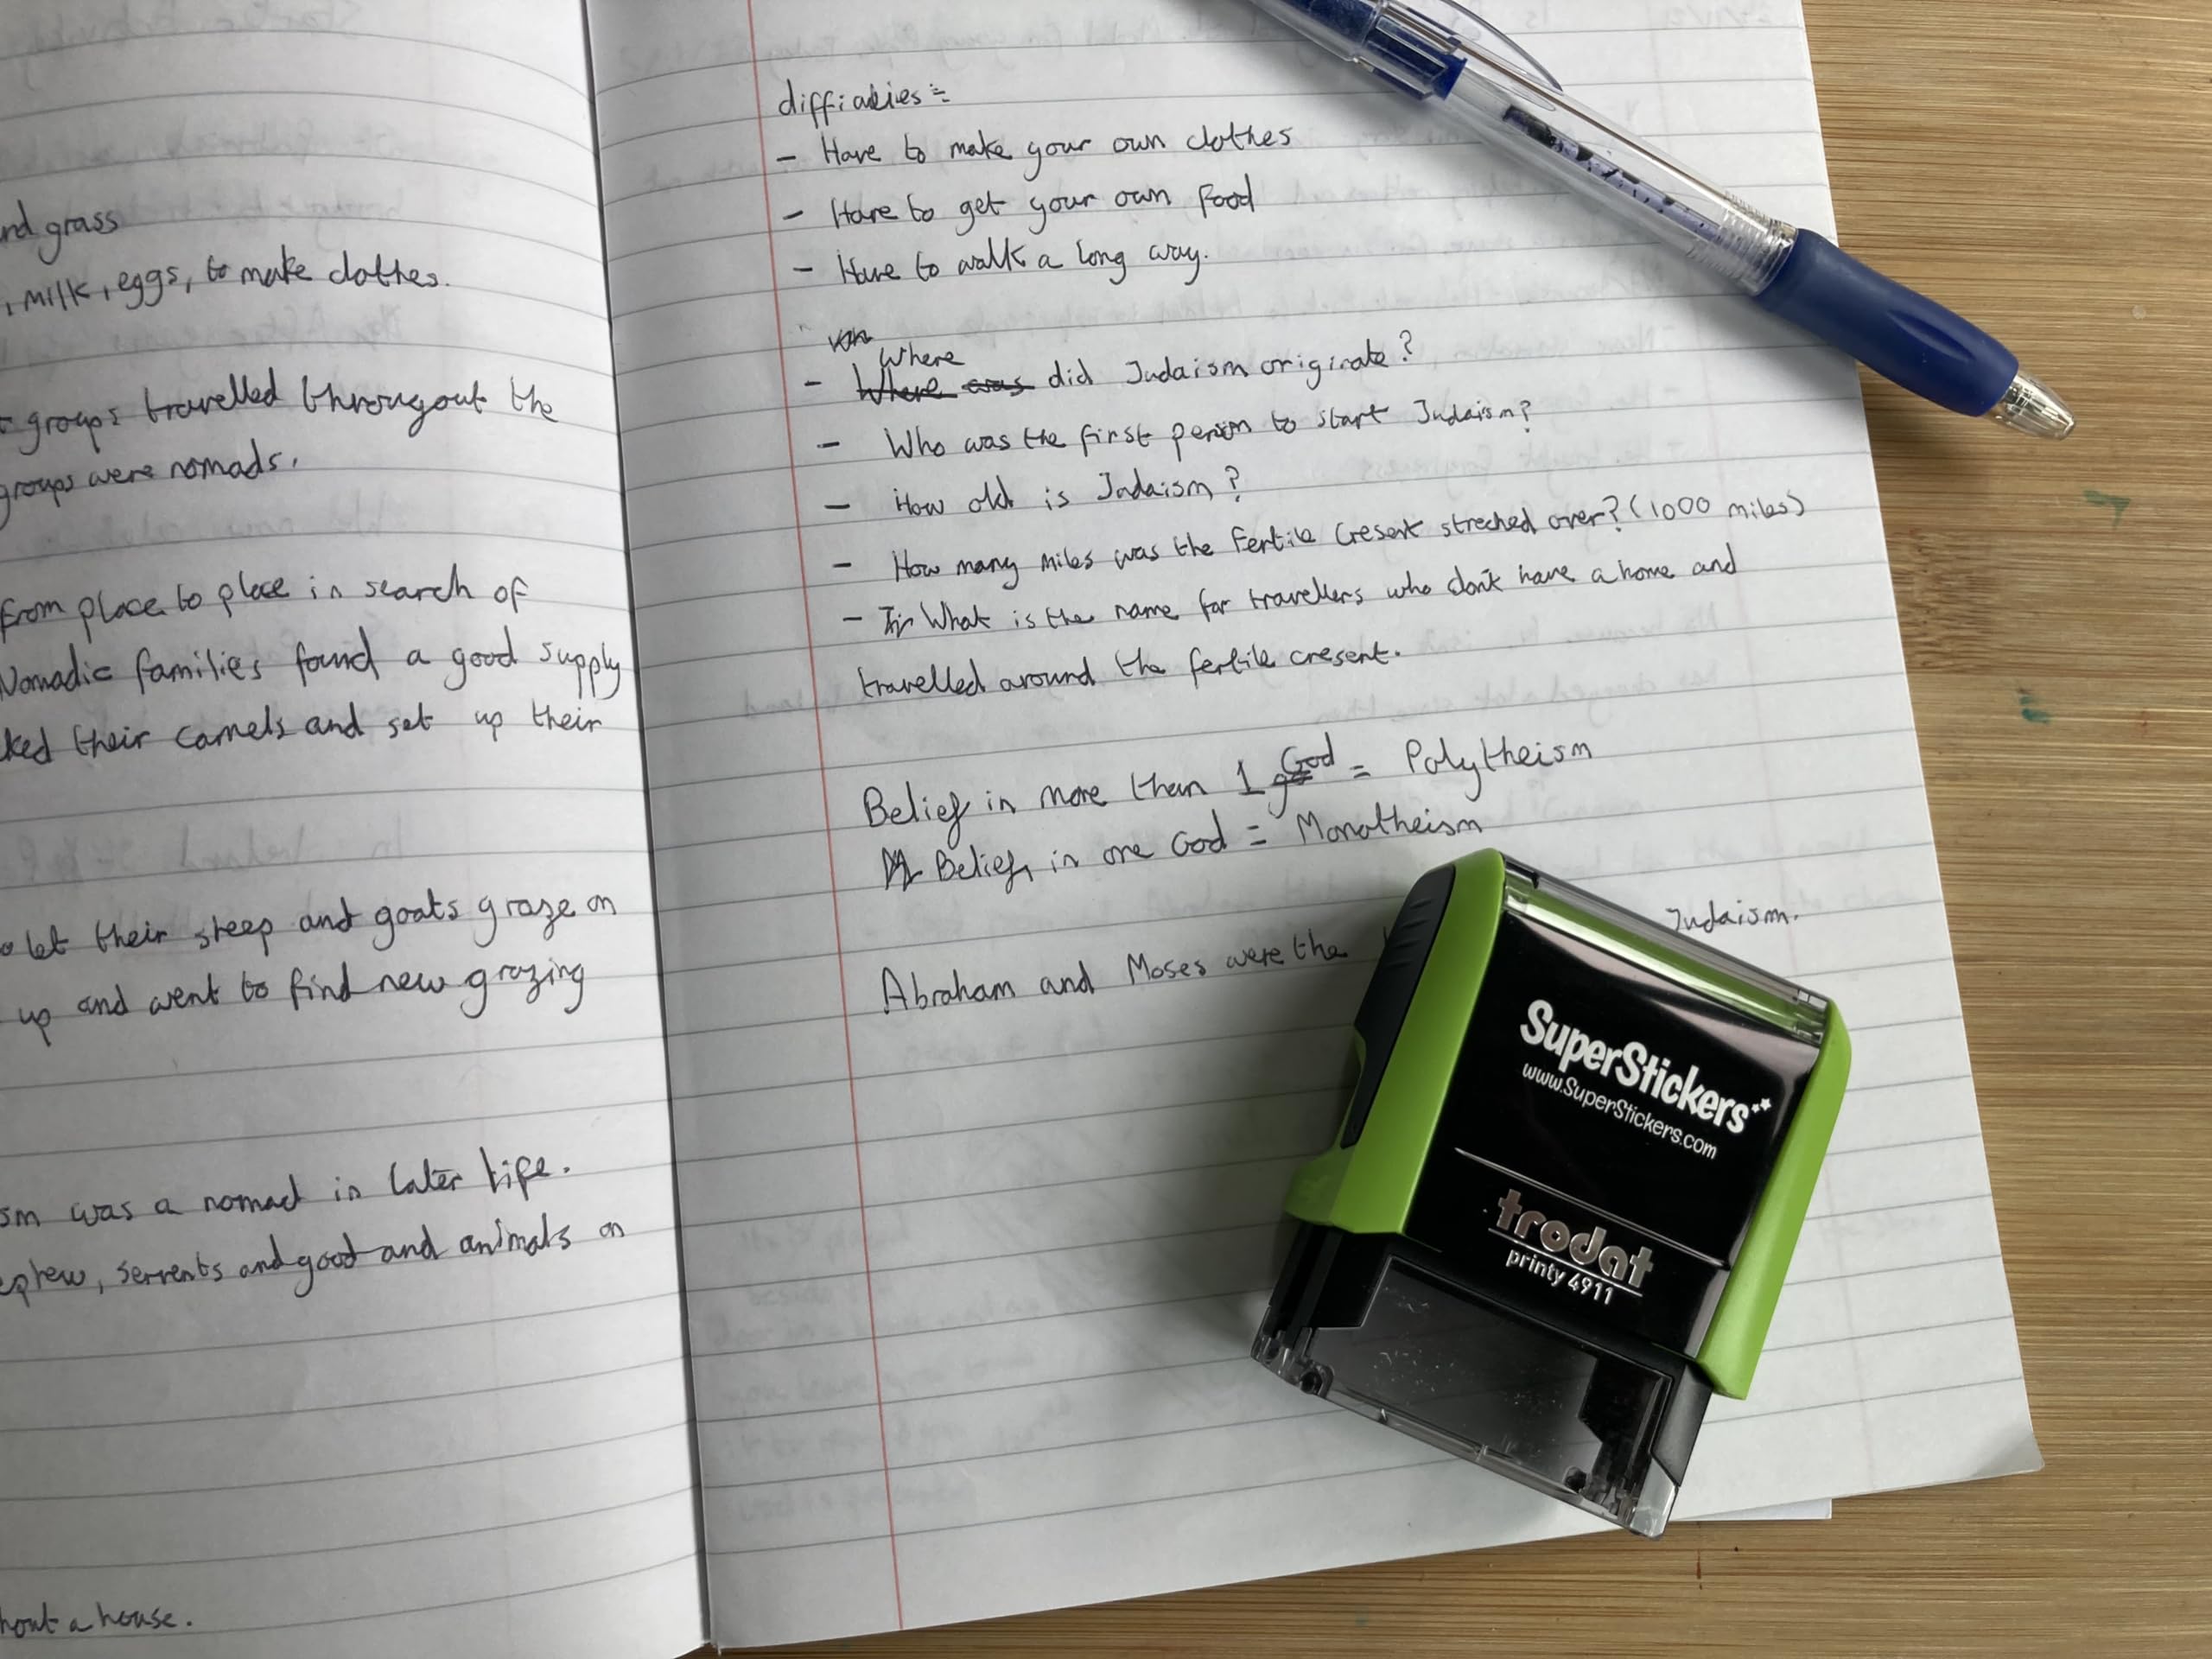 nd grass
, milk, eggs, to make clothes.
groups travelled througout the
groups were nomads.
From place to place in search of
Nomadic families found a good supply
ked their camels and set up their
let their steep and goats graze on
up and went to find new grazing
sm was a nomad in later life.
ephew, servents and good and animals on
hout a house.
difficulties :-
- Have to make your own clothes
- Have to get your own food
- Have to walk a long way.
Where
- Where was did Judaism originate?
- Who was the first person to start Judaism?
- How old is Judaism?
- How many miles was the Fertile Cresent streched over? (1000 miles)
- What is the name for travellers who don't have a home and
travelled around the fertile cresent.
Belief in more than 1 God = Polytheism
Belief in one God = Monotheism
Abraham and Moses were the Judaism.
SuperStickers
www.SuperStickers.com
trodat
printy 4911